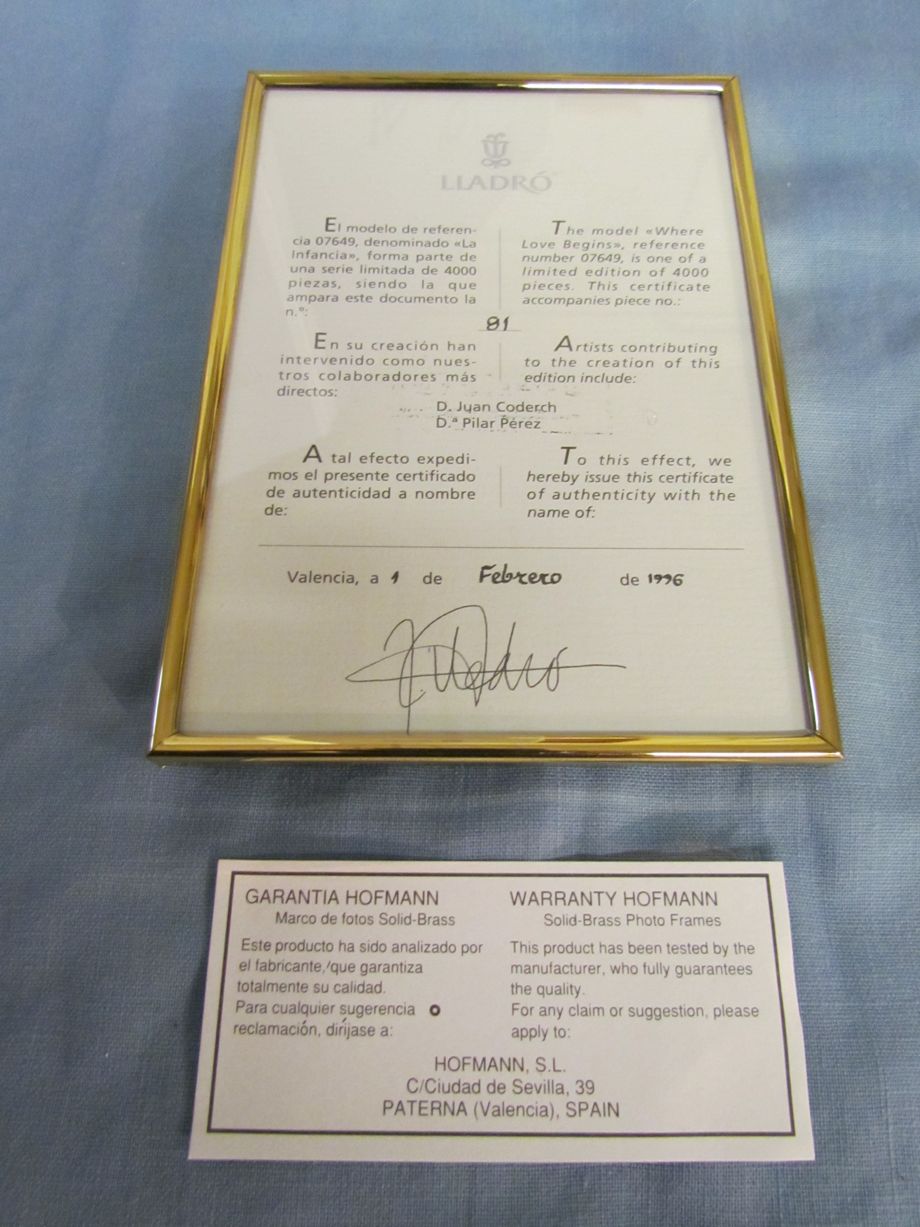 LLADRÓ
El modelo de referen-
cia 07649, denominado «La
Infancia», forma parte de
una serie limitada de 4000
piezas, siendo la que
ampara este documento la
n.º:
The model «Where
Love Begins», reference
number 07649, is one of a
limited edition of 4000
pieces. This certificate
accompanies piece no.:
81
En su creación han
intervenido como nues-
tros colaboradores más
directos:
Artists contributing
to the creation of this
edition include:
D. Juan Coderch
D.ª Pilar Pérez
A tal efecto expedi-
mos el presente certificado
de autenticidad a nombre
de:
To this effect, we
hereby issue this certificate
of authenticity with the
name of:
Valencia, a 1 de Febrero de 1996
GARANTIA HOFMANN
Marco de fotos Solid-Brass
Este producto ha sido analizado por
el fabricante, que garantiza
totalmente su calidad.
Para cualquier sugerencia o
reclamación, diríjase a:
WARRANTY HOFMANN
Solid-Brass Photo Frames
This product has been tested by the
manufacturer, who fully guarantees
the quality.
For any claim or suggestion, please
apply to:
HOFMANN, S.L.
C/Ciudad de Sevilla, 39
PATERNA (Valencia), SPAIN